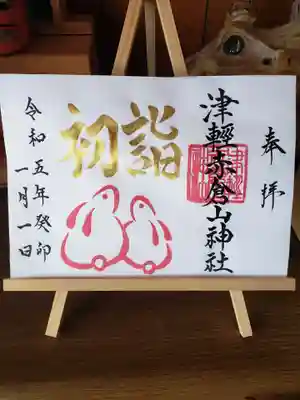 奉拝
津輕赤倉山神社
初詣
令和五年癸卯
一月一日